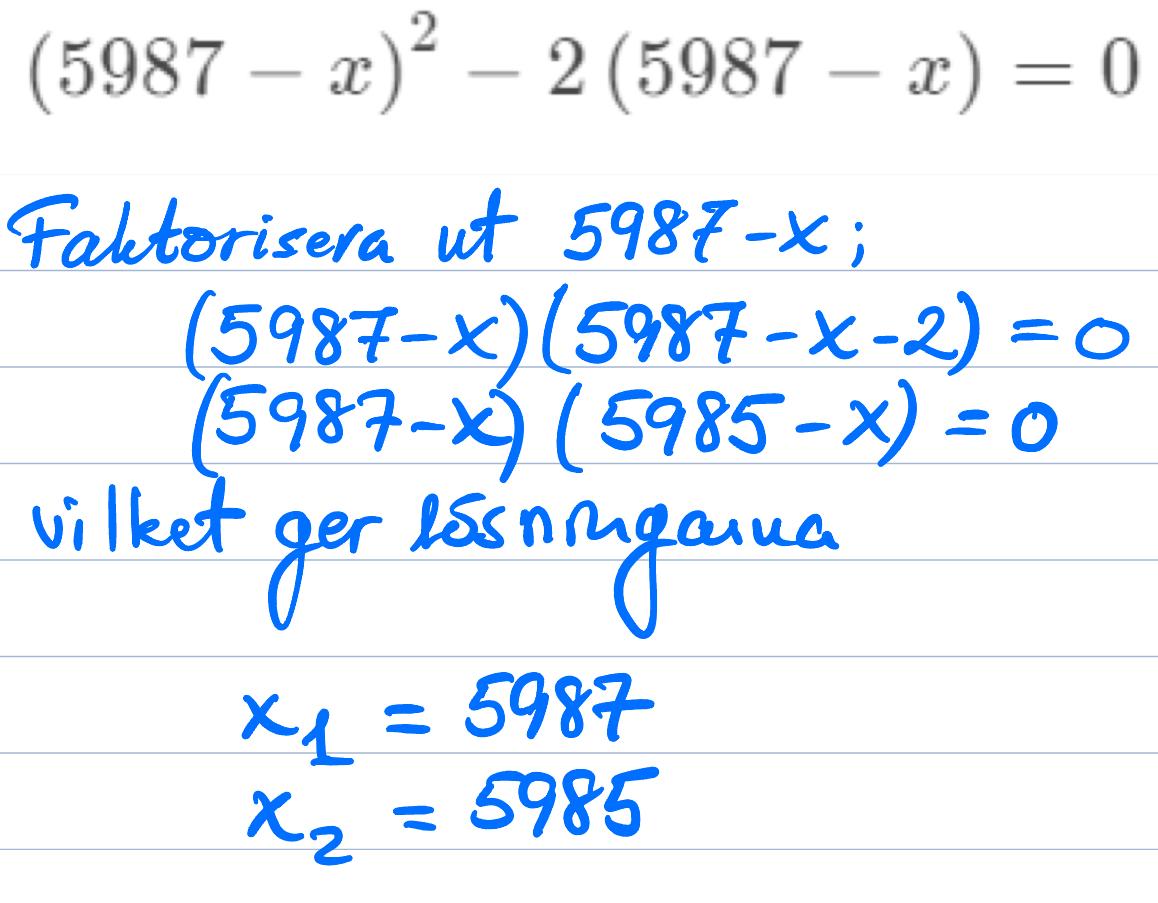 (5987 − x)² − 2 (5987 − x) = 0
Faktorisera ut 5987-x;
(5987-x)(5987-x-2) = 0
(5987-x) (5985-x) = 0
vilket ger lösningarna
x₁ = 5987
x₂ = 5985